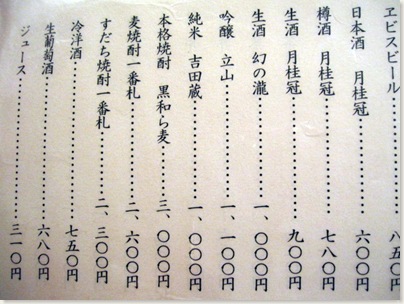 ヱビスビール……………八五〇円
日本酒 月桂冠……………六〇〇円
樽酒 月桂冠……………七八〇円
生酒 月桂冠……………九〇〇円
生酒 幻の瀧……………一、〇〇〇円
吟醸 立山……………一、一〇〇円
純米 吉田蔵……………一、〇〇〇円
本格焼酎 黒和ら麦……三、〇〇〇円
麦焼酎一番札……………二、六〇〇円
すだち焼酎一番札………二、三〇〇円
冷洋酒……………七五〇円
生葡萄酒……………六八〇円
ジュース……………三一〇円